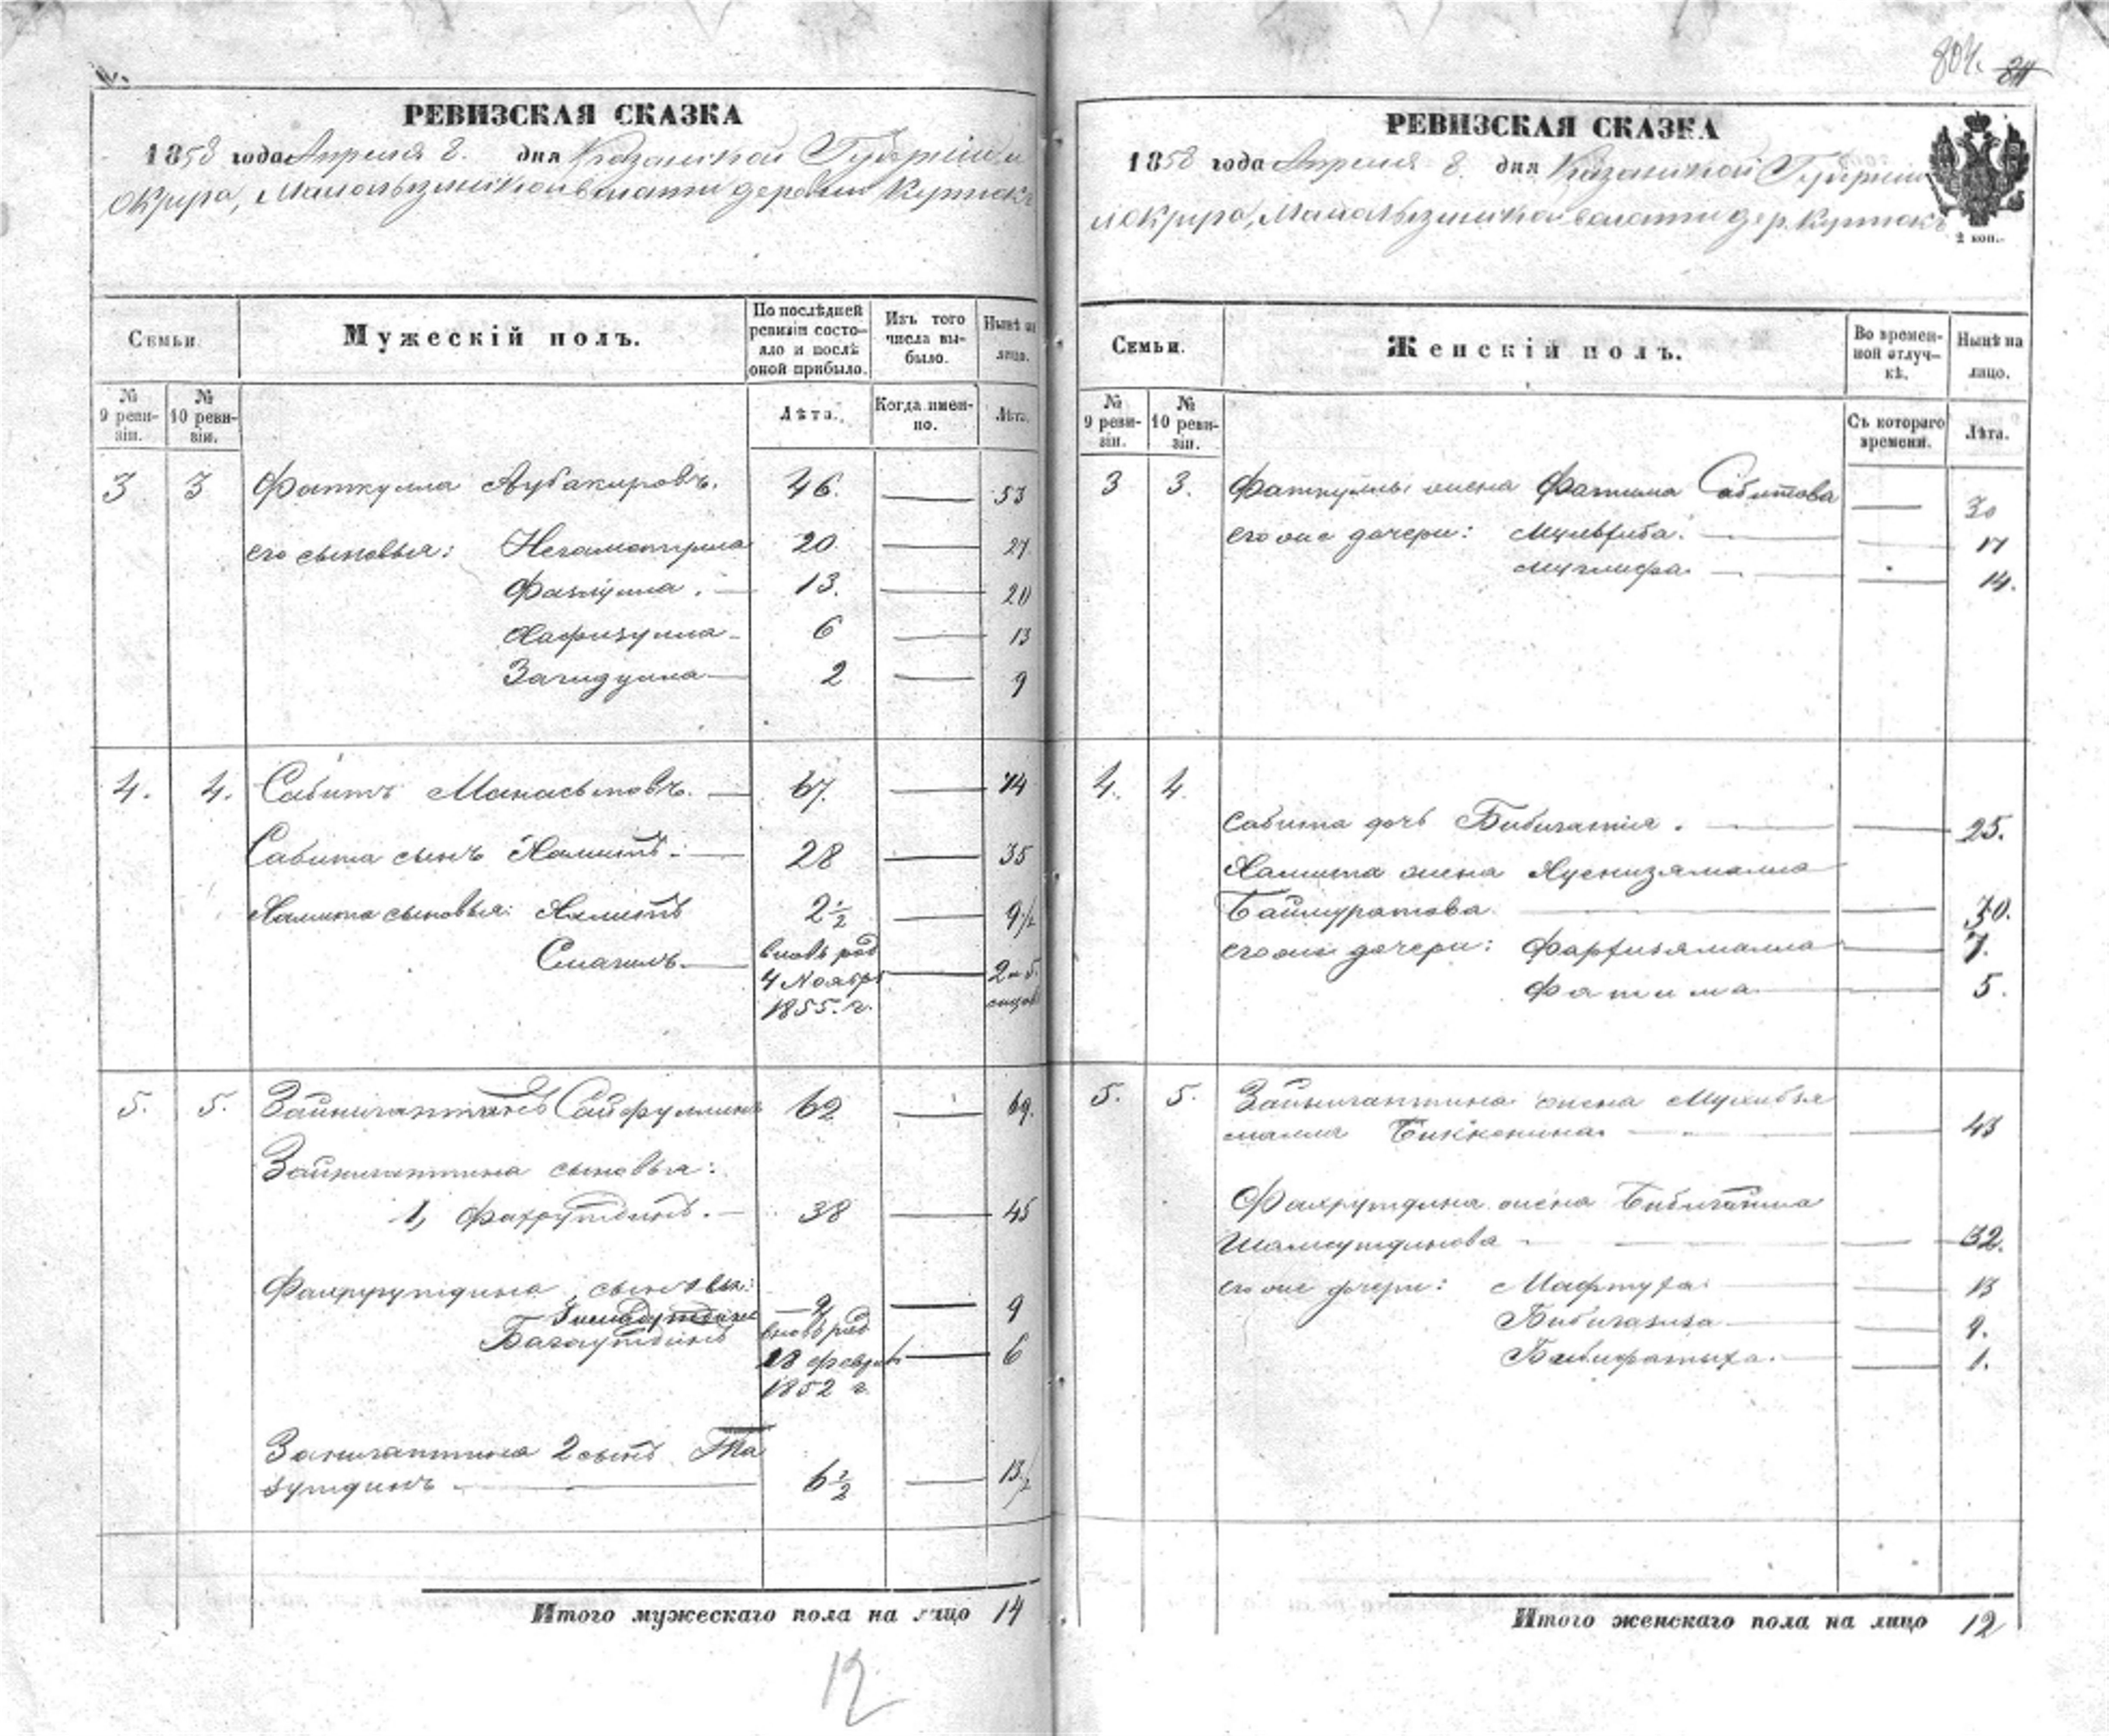 804. 811
РЕВИЗСКАЯ СКАЗКА
1858 года Апреля 8. дня Казанской Губерніи и
округа, волости деревни Куркак
Семьи.
Мужескій полъ.
По послѣдней ревизіи состояло и послѣ оной прибыло.
Изъ того числа выбыло.
Нынѣ на лицо.
№ 9 ревизіи.
№ 10 ревизіи.
Лѣта.
Когда именно.
Лѣта.
3 3 Фаткулла Аубакировъ. 46. — 53
его сыновья: Негаметулла 20 — 27
Фазлулла. — 13. — 20
Хафизулла — 6 — 13
Загидулла — 2 — 9
4. 4. Сабитъ Манасыповъ. — 67. — 74
Сабита сынъ Хамитъ. — 28 — 35
Хамита сыновья: 2½ — 9½
Смагилъ. — вновь род
4 Ноябр — 2 и 5.
1855. г.
5. 5. Зайнигаттинъ Сайфуллинъ 62 — 69.
Зайнигаттина сыновья:
1, Фахрутдинъ. — 38 — 45
Фахрутдина сыновья:
— 2 — 9
Багаутдинъ вновь род
18 феврал — 6
1852 г.
Зайнигаттина 2 сынъ Та
зутдинъ. — 6½ — 13½
Итого мужескаго пола на лицо 14
12
РЕВИЗСКАЯ СКАЗКА
1858 года Апреля 8. дня Казанской Губерніи
и округа, волости дер. Куркакъ
2 коп.
Семьи.
Женскій полъ.
Во временной отлучкѣ.
Нынѣ на лицо.
№ 9 ревизіи.
№ 10 ревизіи.
Съ котораго времени.
Лѣта.
3 3. Фаткуллы жена Фатима Сабитова — 30
его же дочери: — 17
— 14.
4. 4.
Сабита дочь — 25.
Хамита жена Хуснизямалла
Баймуратова — 30.
его же дочери: — 7.
Фатима — 5.
5. 5. Зайнигаттина жена Мухибзя
малла — 43
Фахрутдина жена
Шамсутдинова — 32.
его же дочери: Мафтуха — 13
Бибигазиза — 9.
Бибифатыха. — 1.
Итого женскаго пола на лицо 12